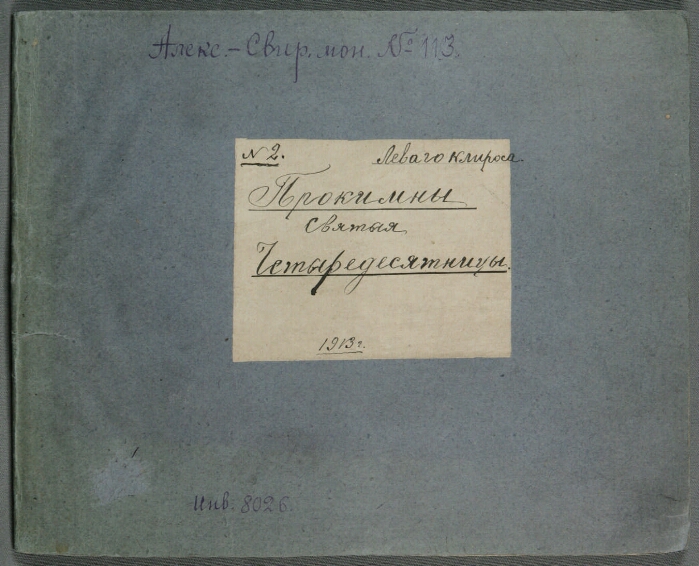 Алекс.-Свир. мон. № 113.
№ 2. Леваго клироса.
Прокимны
Святыя
Четыредесятницы.
1913 г.
Инв. 8026